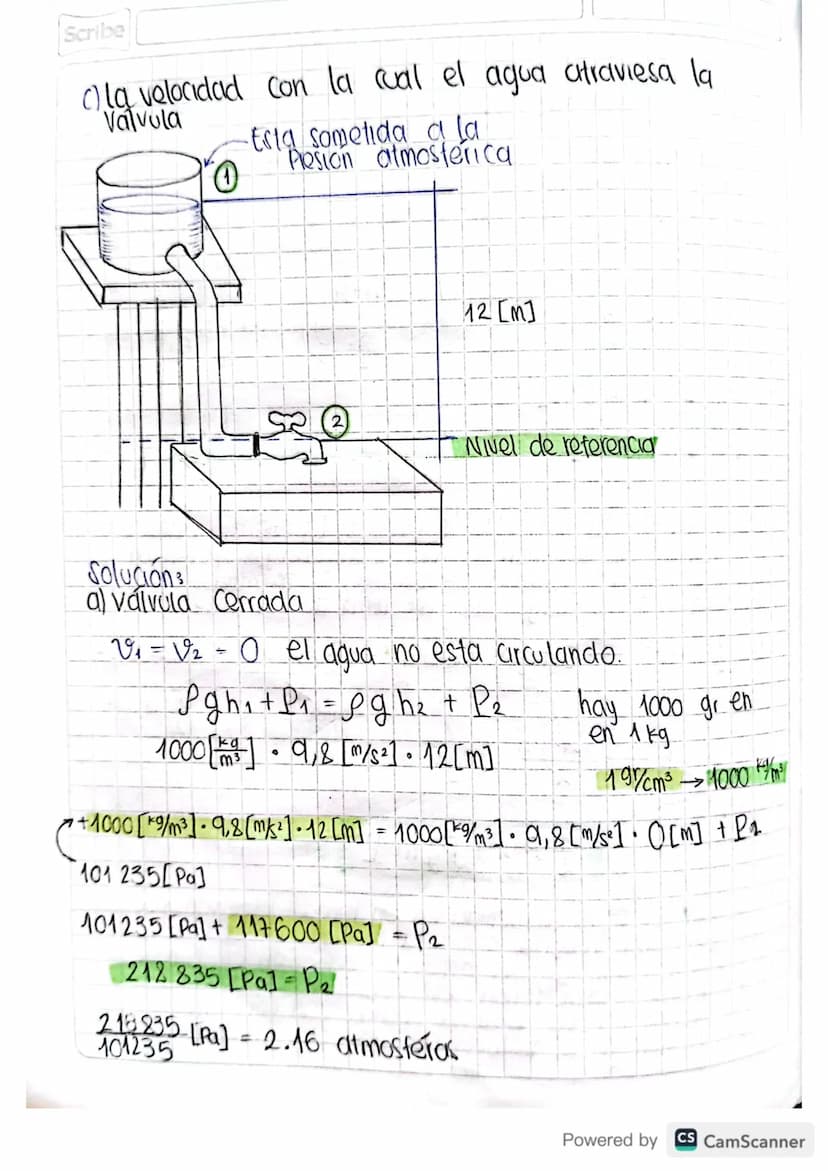 Scribe
c) la velocidad con la cual el agua atraviesa la
válvula
Esta sometida a la
Presión atmosférica
1
12 [m]
2
Nivel de referencia
Solución:
a) válvula Cerrada
v₁ = v₂ = 0 el agua no esta circulando.
ρgh₁ + P₁ = ρgh₂ + P₂
hay 1000 gr en
en 1 kg
1000 [kg/m³] · 9,8 [m/s²] · 12 [m]
1 gr/cm³ → 1000 kg/m³
+1000 [kg/m³] · 9,8 [m/s²] · 12 [m] = 1000 [kg/m³] · 9,8 [m/s²] · 0 [m] + P₂
101 235 [Pa]
101235 [Pa] + 117600 [Pa] = P₂
218 835 [Pa] = P₂
218835/101235 [Pa] = 2.16 atmosféras
Powered by CS CamScanner